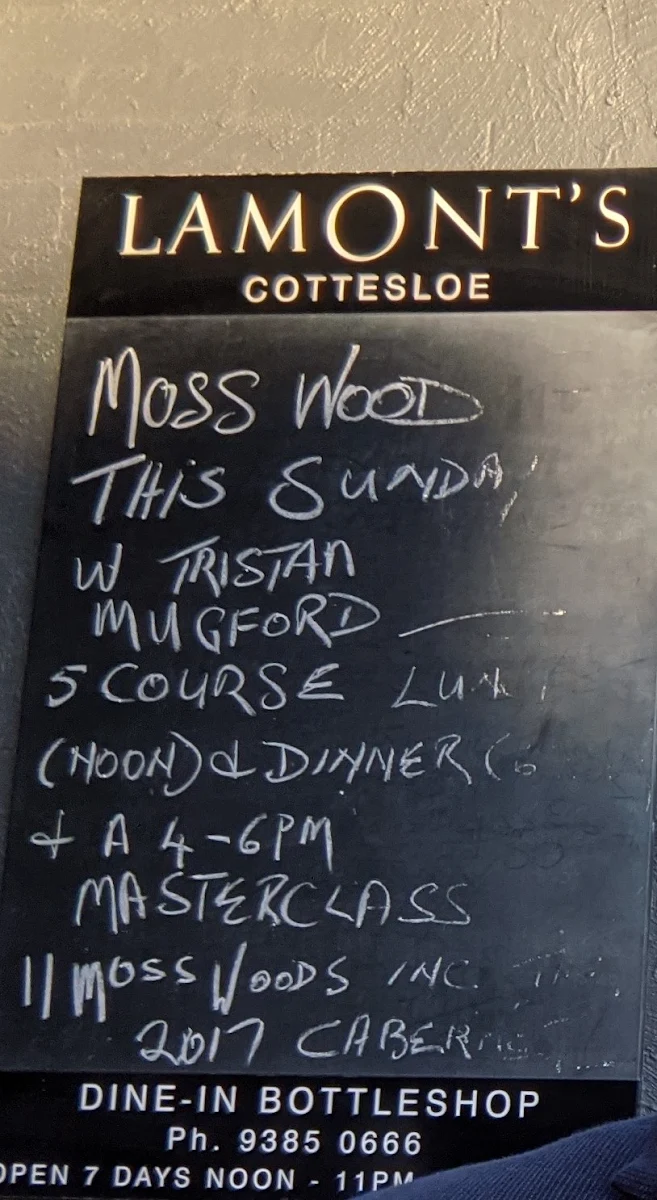 LAMONT'S
COTTESLOE
MOSS WOOD
THIS SUNDAY
W TRISTAN
MUGFORD —
5 COURSE
(NOON) & DINNER (6
+ A 4-6PM
MASTERCLASS
11 MOSS WOODS INC.
2017
DINE-IN BOTTLESHOP
Ph. 9385 0666
OPEN 7 DAYS NOON - 11PM